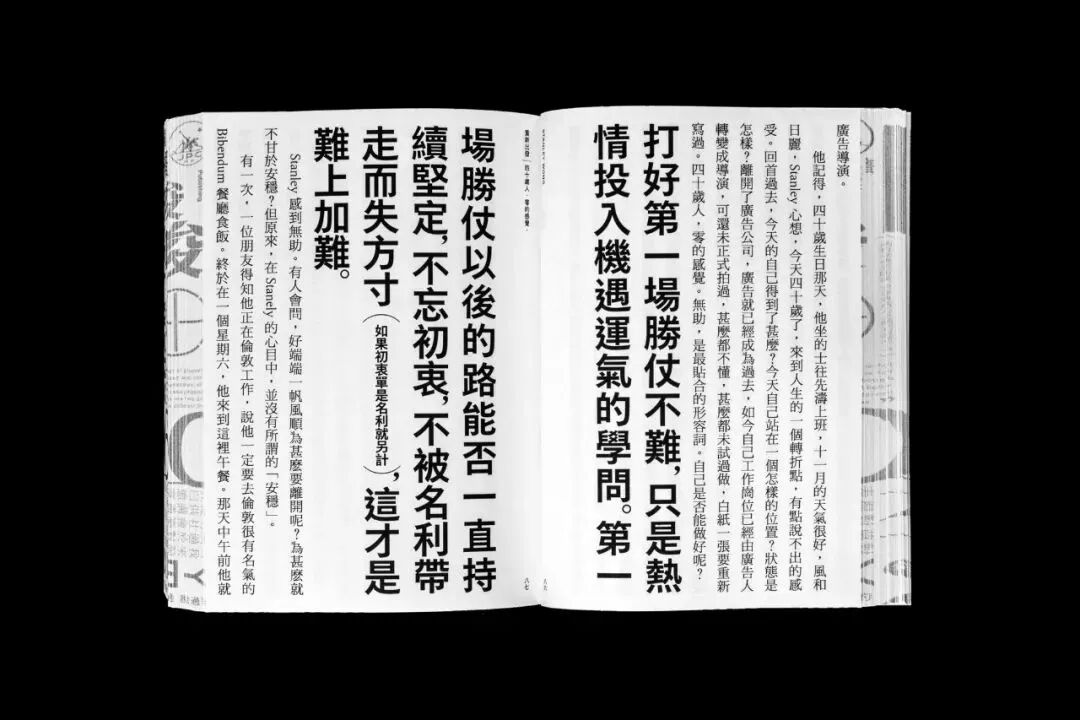 廣告導演。
他記得，四十歲生日那天，他坐的士往先濤上班，十一月的天氣很好，風和
日麗，Stanley 心想，今天四十歲了，來到人生的一個轉折點，有點說不出的感
受。回首過去，今天的自己得到了甚麼？今天自己站在一個怎樣的位置？狀態是
怎樣？離開了廣告公司，廣告就已經成為過去，如今自己工作崗位已經由廣告人
轉變成導演，可還未正式拍過，甚麼都不懂，甚麼都未試過做，白紙一張要重新
寫過。四十歲人，零的感覺。無助，是最貼合的形容詞。自己是否能做好呢？
打好第一場勝仗不難，只是熱
情投入機遇運氣的學問。第一
八六
重新出發，四十歲人，零的感覺。
場勝仗以後的路能否一直持
續堅定，不忘初衷，不被名利帶
走而失方寸（如果初衷單是名利就另計），這才是
難上加難。
Stanley 感到無助。有人會問，好端端一帆風順為甚麼要離開呢？為甚麼就
不甘於安穩？但原來，在 Stanely 的心目中，並沒有所謂的「安穩」。
有一次，一位朋友得知他正在倫敦工作，說他一定要去倫敦很有名氣的
Bibendum 餐廳食飯。終於在一個星期六，他來到這裡午餐。那天中午前他就
八七
Publishing